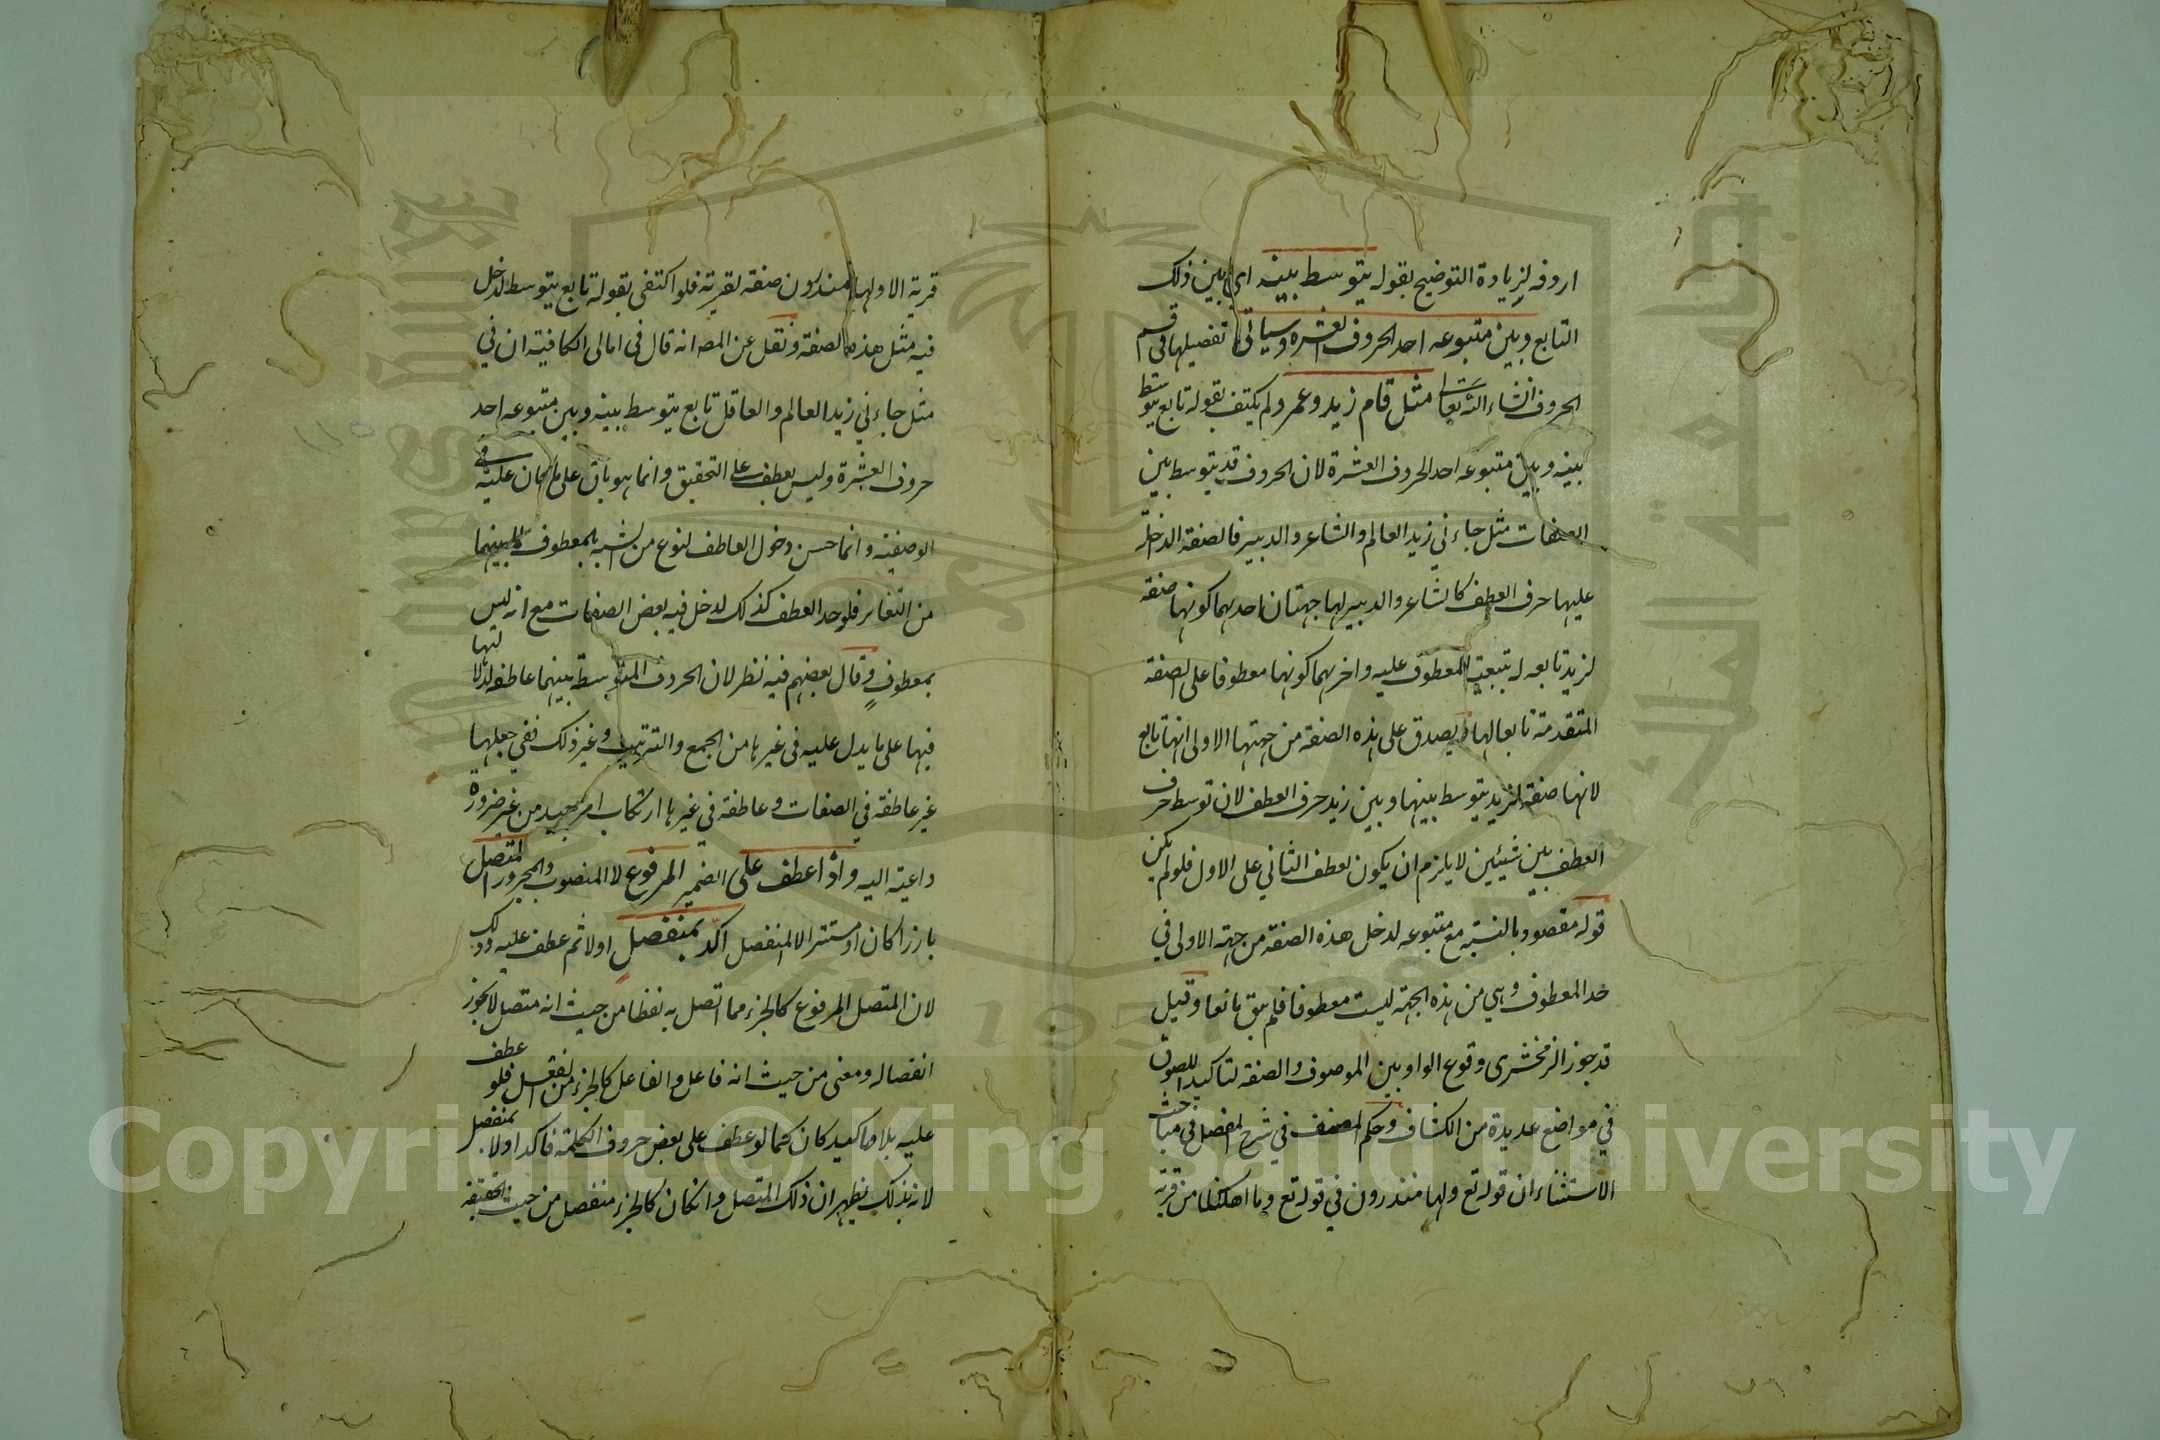 اردفه لزيادة التوضيح بقوله يتوسط بينه اى بين ذلك
التابع وبين متبوعه احد الحروف العشرة وسياتى تفصيلها فى قسم
الحروف انشاء الله تعالى مثل قام زيد وعمرو ولم يكتف بقوله تابع يتوسط
بينه وبين متبوعه احد الحروف العشرة لان الحروف قد يتوسط بين
الصفات مثل جاءني زيد العالم والشاعر والدبير فالصفة الداخلة
عليها حرف العطف كالشاعر والدبير لها جهتان احديهما كونها صفة
لزيد تابعه له بتبعية المعطوف عليه واخريهما كونها معطوفا على الصفة
المتقدمة تابعا لها فيصدق على هذه الصفة من جهتها الاولى انها تابع
لانها صفة لزيد يتوسط بينها وبين زيد حرف العطف لان توسط حرف
العطف بين شيئين لا يلزم ان يكون لعطف الثاني على الاول فلو لم يكن
قوله مقصود بالنسبة مع متبوعه لدخل هذه الصفة من جهة الاولى في
حد المعطوف وهي من هذه الجهة ليست معطوفا فلم يبق مانعا وقيل
قد جوز الزمخشرى وقوع الواو بين الموصوف والصفة لتاكيد اللصوق
في مواضع عديدة من الكشاف وحكم المصنف في شرح المفصل في مباحث
الاستثناء ان قوله تع ولها منذرون في قوله تع وما اهلكنا من قرية
قرية الا ولها منذرون صفة لقرية فلو اكتفى بقوله تابع يتوسط لدخل
فيه مثل هذه الصفة ونقل عن المصه انه قال فى امالى الكافية ان في
مثل جاءني زيد العالم والعاقل تابع يتوسط بينه وبين متبوعه احد
حروف العشرة وليس بعطف على التحقيق وانما هو باق على ما كان عليه فى
الوصفية وانما حسن دخول العاطف لنوع من الشبه بالمعطوف لما بينهما
من التغاير فلو حد العطف كذلك لدخل فيه بعض الصفات مع انه ليس
بمعطوف وقال بعضهم فيه نظر لان الحروف المتوسطة بينهما عاطفة لدلالتها
فيها على ما يدل عليه في غيرها من الجمع والترتيب وغير ذلك ففي جعلها
غير عاطفة في الصفات وعاطفة في غيرها ارتكاب امر بعيد من غير ضرورة
داعية اليه واذا عطف على الضمير المرفوع لا المنصوب والمجرور المتصل
بارزا كان او مستترا لا المنفصل اكد بمنفصل اولا ثم عطف عليه وذلك
لان المتصل المرفوع كالجزء مما اتصل به لفظا من حيث انه متصل لا يجوز
انفصاله ومعنى من حيث انه فاعل والفاعل كالجزء من الفعل فلو عطف
عليه بلا تاكيد كان كما لو عطف على بعض حروف الكلمة فاكد اولا بمنفصل
لانه بذلك يظهر ان ذلك المتصل وانكان كالجزء منفصل من حيث الحقيقة
Copyright © King Saud University
1957